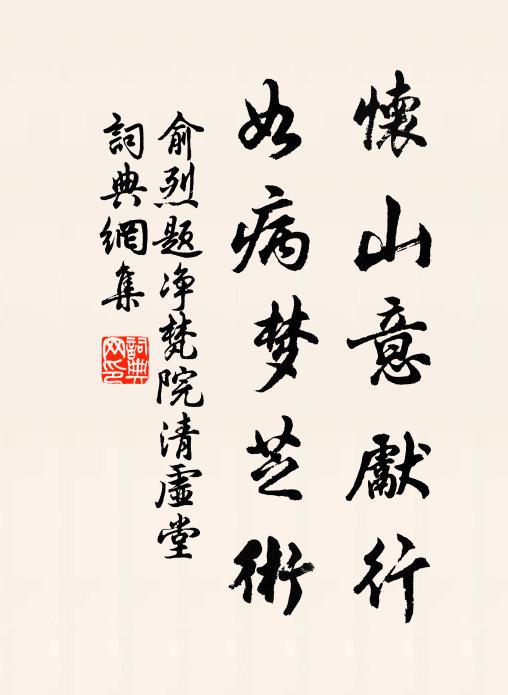 懷山意獻行
如病梦芝術
俞烈题净梵院清虛堂
詞典網集
詞典
网印